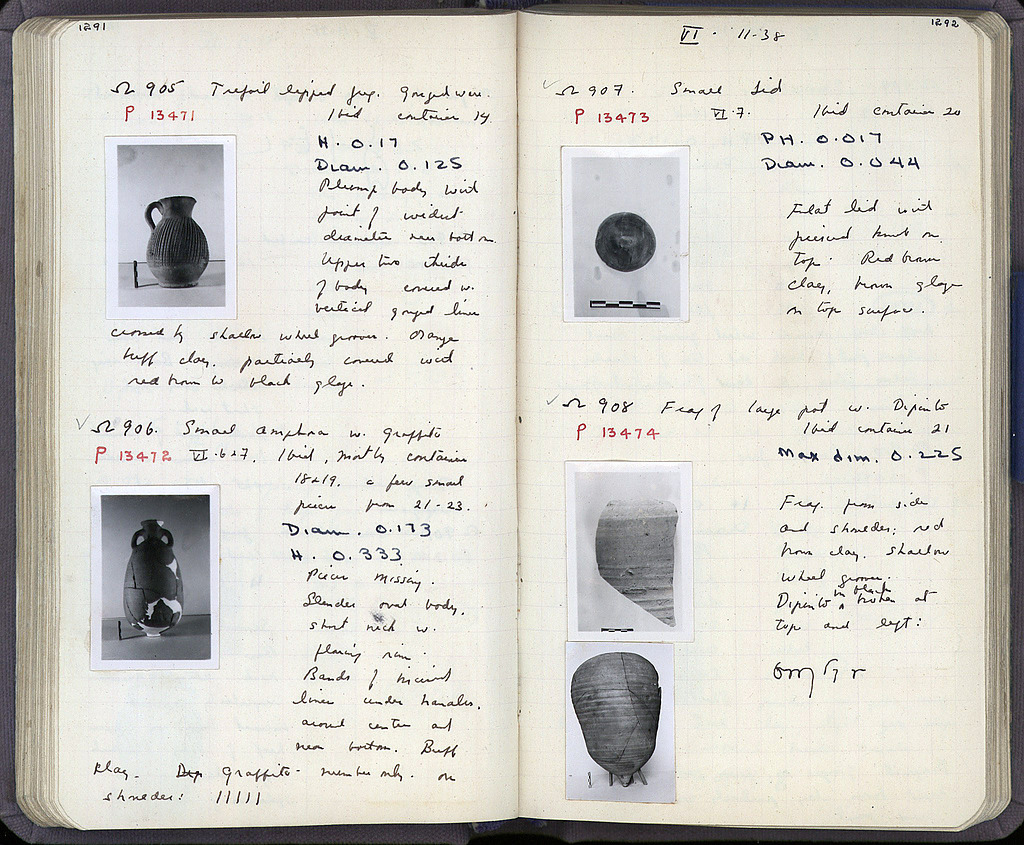 1291
Ω 905 Trefoil lipped jug. Gouged ware.
P 13471 Ibid container 14.
H. 0.17
Diam. 0.125
Plump body with
point of widest
diameter near bottom.
Upper two thirds
of body covered w.
vertical gouged lines
crossed by shallow wheel grooves. Orange
buff clay, partially covered with
red brown to black glaze.
Ω 906. Small amphora w. Graffito
P 13472 VI. 6+7. Ibid, mostly container
18+19. a few small
pieces from 21-23.
Diam. 0.173
H. 0.333
Pieces missing.
Slender oval body,
short neck w.
flaring rim.
Bands of incised
lines under handles,
around center and
near bottom. Buff
clay. Graffito - number only. on
shoulder: /////
1292
VI · 11-38
Ω 907. Small Lid
P 13473 VI.7. Ibid container 20
PH. 0.017
Diam. 0.044
Flat lid with
pierced knob on
top. Red brown
clay, brown glaze
on top surface.
Ω 908 Frag of large pot w. Dipinto
P 13474 Ibid container 21
Max dim. 0.225
Frag. from side
and shoulder; red
brown clay. Shallow
wheel grooves.
Dipinto in black broken at
top and left: